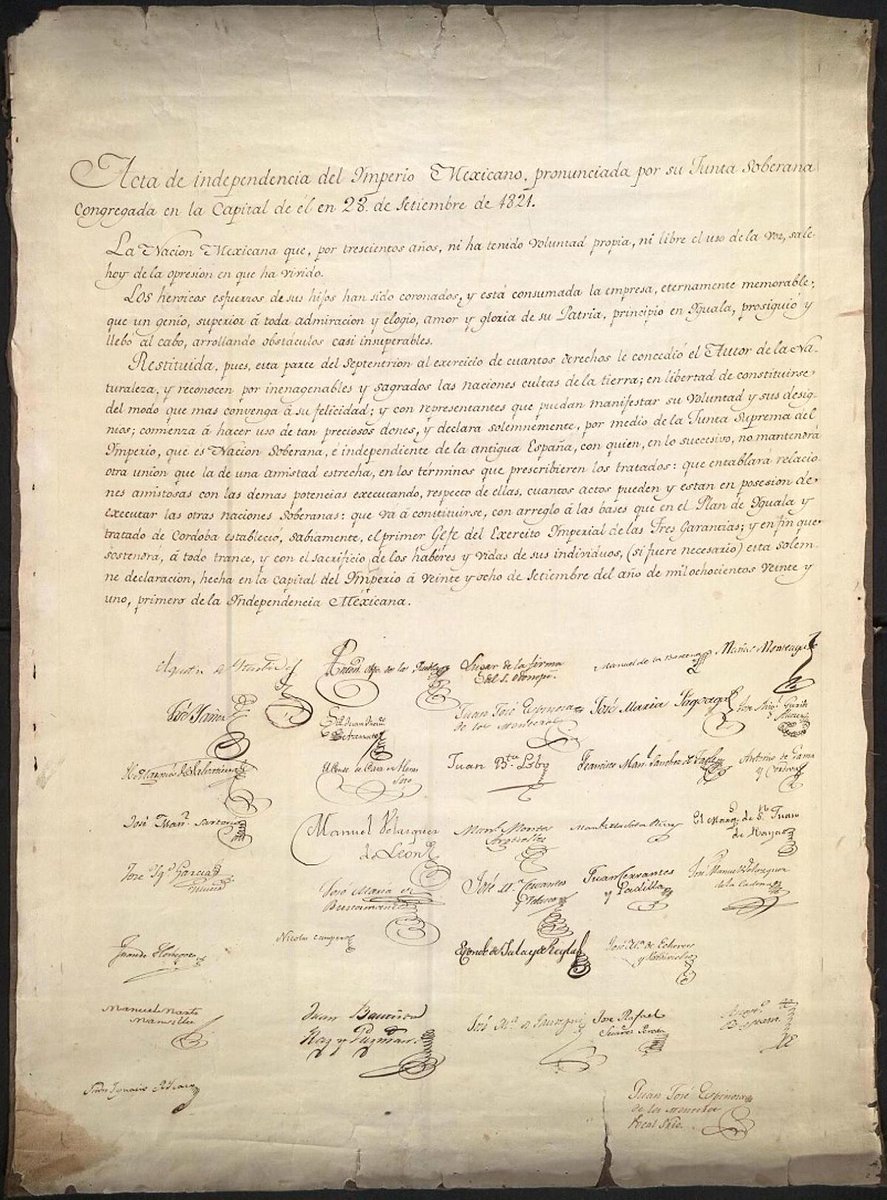 Acta de independencia del Imperio Mexicano, pronunciada por su Junta Soberana
congregada en la Capital de él en 28 de Setiembre de 1821.
La Nacion Mexicana que, por trescientos años, ni ha tenido voluntad propia, ni libre el uso de la voz, sale
hoy de la opresion en que ha vivido.
Los heroicos esfuerzos de sus hijos han sido coronados, y está consumada la empresa, eternamente memorable,
que un genio, superior á toda admiracion y elogio, amor y gloria de su Patria, principió en Iguala, prosiguió y
llebó al cabo, arrollando obstáculos casi insuperables.
Restituida, pues, esta parte del Septentrion al exercicio de cuantos derechos le concedió el Autor de la Na-
turaleza, y reconocen por inenagenables y sagrados las naciones cultas de la tierra; en libertad de constituirse
del modo que mas convenga á su felicidad; y con representantes que puedan manifestar su voluntad y sus desig-
nios; comienza á hacer uso de tan preciosos dones, y declara solemnemente, por medio de la Junta Suprema del
Imperio, que es Nacion Soberana, é independiente de la antigua España, con quien, en lo succesivo, no mantendrá
otra union que la de una amistad estrecha, en los términos que prescribieren los tratados: que entablará relacio-
nes amistosas con las demas potencias executando, respecto de ellas, cuantos actos pueden y estan en posesion de
executar las otras naciones Soberanas: que vá á constituirse, con arreglo á las bases que en el Plan de Iguala y
tratado de Cordoba estableció, sabiamente, el primer Gefe del Exercito Imperial de las Tres Garantías; y en fin que
sostendrá, á todo trance, y con el sacrificio de los haberes y vidas de sus individuos, (si fuere necesario) esta solem-
ne declaracion, hecha en la Capital del Imperio á veinte y ocho de Setiembre del año de mil ochocientos veinte y
uno, primero de la Independencia Mexicana.
Lugar de la firma
del S. Odonojú
Manuel de la Bárcena
Matías Monteagudo
José Yañez
Juan José Espinosa
de los Monteros
José Maria Fagoaga
Juan Bta. Lobo
Franco. Manl. Sanchez de Tagle
Antonio de Gama
y Cordova
José Manl. Sartorio
Manuel Velazquez
de Leon
Manl. Montes
Arguelles
El Marqs. de Sn. Juan
de Rayas
José Igno. Garcia
José Maria de
Bustamante
José Ma. Cervantes
y Velasco
Juan Cervantes
y Padilla
José Manuel Velazquez
de la Cadena
Juan de Horbegoso
Nicolas Campero
El Conde de Jala y de Regla
José Ma. de Echevers
y Valdivielso
Manuel Martz
Mansilla
Juan Bautista
Raz y Guzman
José Ma. de Jauregui
José Rafael
Suarez Pereda
Juan José Espinosa
de los Monteros
Vocal Srio.